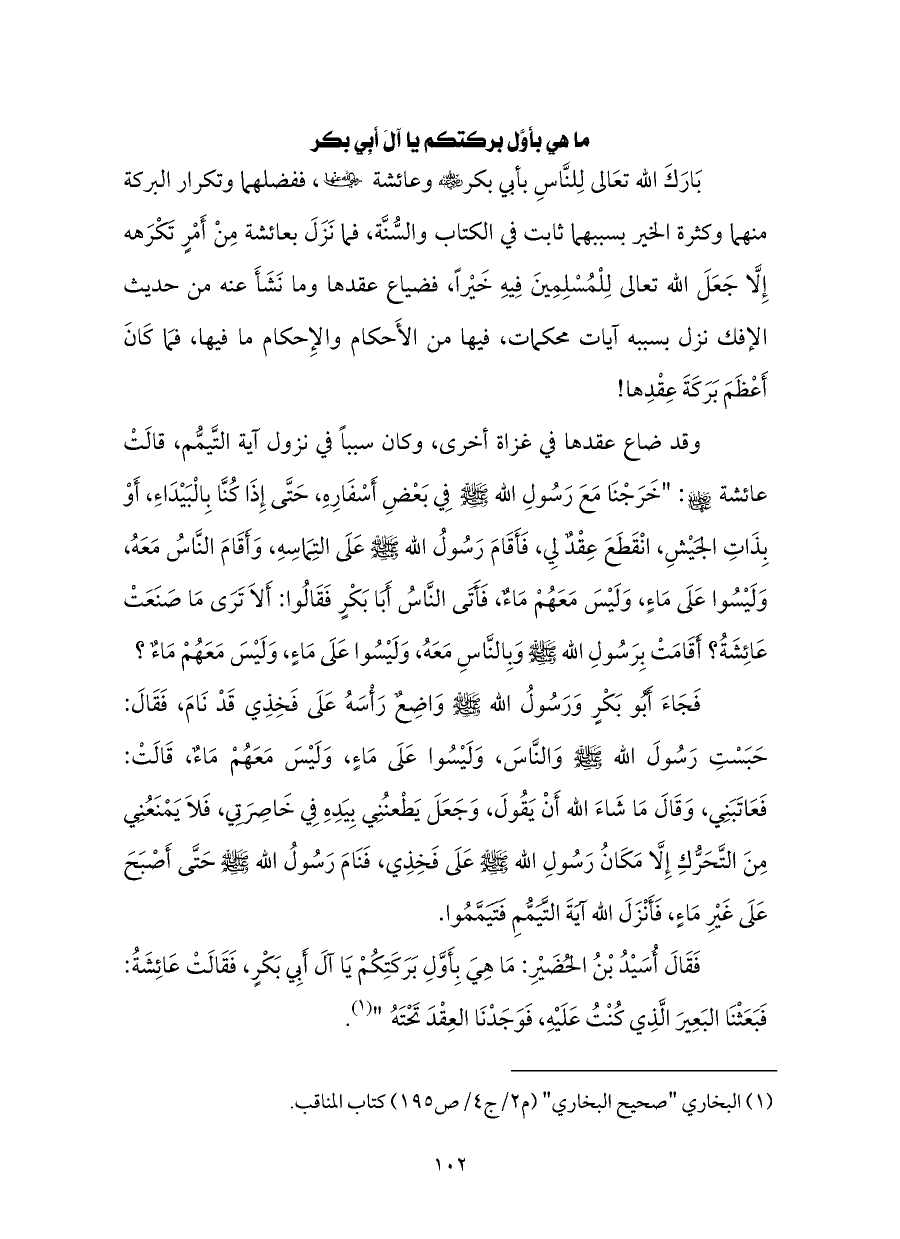 ما هي بأوَّل بركتكم يا آلَ أبي بكر
بَارَكَ الله تعَالى لِلنَّاسِ بأبي بكر ﷺ وعائشة رضي الله عنها، ففضلهما وتكرار البركة
منهما وكثرة الخير بسببهما ثابت في الكتاب والسُّنَّة، فما نَزَلَ بعائشة مِنْ أَمْرٍ تَكْرَهه
إِلَّا جَعَلَ الله تعالى لِلْمُسْلِمِينَ فِيهِ خَيْراً، فضياع عقدها وما نَشَأَ عنه من حديث
الإفك نزل بسببه آيات محكمات، فيها من الأَحكام والإِحكام ما فيها، فمَا كَانَ
أَعْظَمَ بَرَكَةَ عِقْدِها!
وقد ضاع عقدها في غزاة أخرى، وكان سبباً في نزول آية التَّيمُّم، قالَتْ
عائشة رضي الله عنها: "خَرَجْنَا مَعَ رَسُولِ الله ﷺ فِي بَعْضِ أَسْفَارِهِ، حَتَّى إِذَا كُنَّا بِالْبَيْدَاءِ، أَوْ
بِذَاتِ الجَيْشِ، انْقَطَعَ عِقْدٌ لِي، فَأَقَامَ رَسُولُ الله ﷺ عَلَى التِمَاسِهِ، وَأَقَامَ النَّاسُ مَعَهُ،
وَلَيْسُوا عَلَى مَاءٍ، وَلَيْسَ مَعَهُمْ مَاءٌ، فَأَتَى النَّاسُ أَبَا بَكْرٍ فَقَالُوا: أَلاَ تَرَى مَا صَنَعَتْ
عَائِشَةُ؟ أَقَامَتْ بِرَسُولِ الله ﷺ وَبِالنَّاسِ مَعَهُ، وَلَيْسُوا عَلَى مَاءٍ، وَلَيْسَ مَعَهُمْ مَاءٌ ؟
فَجَاءَ أَبُو بَكْرٍ وَرَسُولُ الله ﷺ وَاضِعٌ رَأْسَهُ عَلَى فَخِذِي قَدْ نَامَ، فَقَالَ:
حَبَسْتِ رَسُولَ الله ﷺ وَالنَّاسَ، وَلَيْسُوا عَلَى مَاءٍ، وَلَيْسَ مَعَهُمْ مَاءٌ، قَالَتْ:
فَعَاتَبَنِي، وَقَالَ مَا شَاءَ الله أَنْ يَقُولَ، وَجَعَلَ يَطْعنُنِي بِيَدِهِ فِي خَاصِرَتِي، فَلاَ يَمْنَعُنِي
مِنَ التَّحَرُّكِ إِلَّا مَكَانُ رَسُولِ الله ﷺ عَلَى فَخِذِي، فَنَامَ رَسُولُ الله ﷺ حَتَّى أَصْبَحَ
عَلَى غَيْرِ مَاءٍ، فَأَنْزَلَ الله آيَةَ التَّيَمُّمِ فَتَيَمَّمُوا.
فَقَالَ أُسَيْدُ بْنُ الحُضَيْرِ: مَا هِيَ بِأَوَّلِ بَرَكَتِكُمْ يَا آلَ أَبِي بَكْرٍ، فَقَالَتْ عَائِشَةُ:
فَبَعَثْنَا البَعِيرَ الَّذِي كُنْتُ عَلَيْهِ، فَوَجَدْنَا العِقْدَ تَحْتَهُ "(١).
(١) البخاري "صحيح البخاري" (م٢/ ج٤/ ص١٩٥) كتاب المناقب.
١٠٢